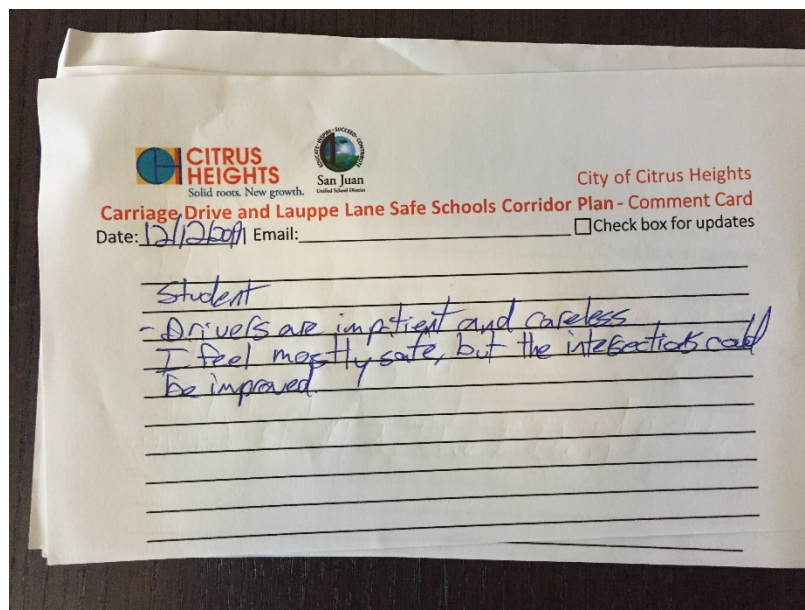 CITRUS
HEIGHTS
Solid roots. New growth.
EDUCATE • INSPIRE • SUCCEED • CONTRIBUTE
San Juan
Unified School District
City of Citrus Heights
Carriage Drive and Lauppe Lane Safe Schools Corridor Plan - Comment Card
Date: 12/12/ Email: Check box for updates
Student
- Drivers are impatient and careless
I feel mostly safe, but the intersections could
be improved.